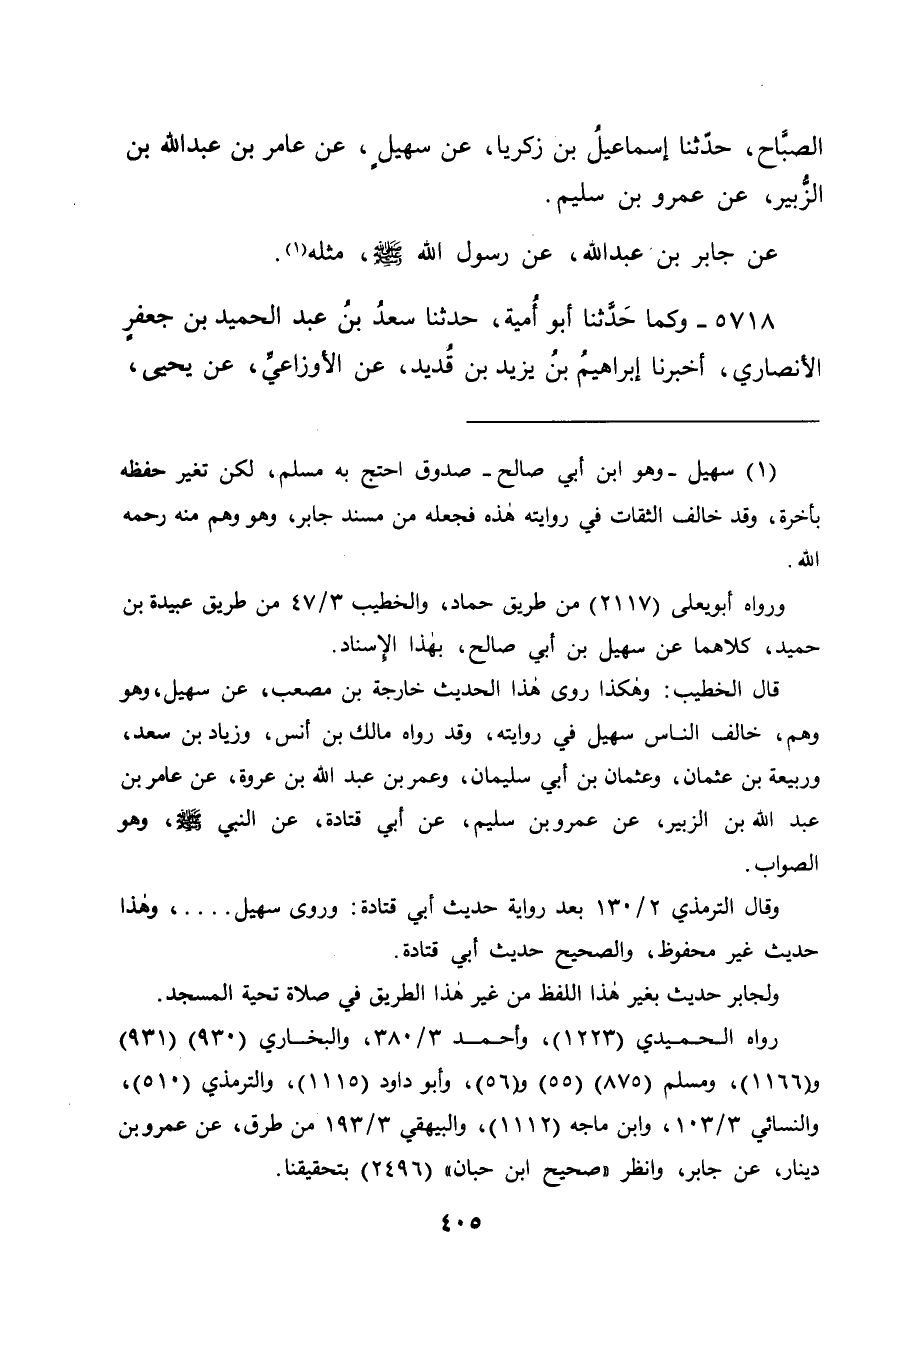 الصبَّاح، حدّثنا إسماعيلُ بن زكريا، عن سهيلٍ، عن عامر بن عبدالله بن
الزُّبير، عن عمرو بن سليم.
عن جابر بن عبدالله، عن رسول الله ﷺ، مثله(١).
٥٧١٨ ـ وكما حَدَّثنا أبو أُمية، حدثنا سعدُ بنُ عبد الحميد بن جعفرٍ
الأنصاري، أخبرنا إبراهيمُ بنُ يزيد بن قُديد، عن الأوزاعيِّ، عن يحيى،
(١) سهيل ـ وهو ابن أبي صالح ـ صدوق احتج به مسلم، لكن تغير حفظه
بأخرة، وقد خالف الثقات في روايته هٰذه فجعله من مسند جابر، وهو وهم منه رحمه
الله.
ورواه أبويعلى (٢١١٧) من طريق حماد، والخطيب ٤٧/٣ من طريق عبيدة بن
حميد، كلاهما عن سهيل بن أبي صالح، بهٰذا الإسناد.
قال الخطيب: وهٰكذا روى هٰذا الحديث خارجة بن مصعب، عن سهيل، وهو
وهم، خالف الناس سهيل في روايته، وقد رواه مالك بن أنس، وزياد بن سعد،
وربيعة بن عثمان، وعثمان بن أبي سليمان، وعمر بن عبد الله بن عروة، عن عامر بن
عبد الله بن الزبير، عن عمرو بن سليم، عن أبي قتادة، عن النبي ﷺ، وهو
الصواب.
وقال الترمذي ١٣٠/٢ بعد رواية حديث أبي قتادة: وروى سهيل.....، وهٰذا
حديث غير محفوظ، والصحيح حديث أبي قتادة.
ولجابر حديث بغير هٰذا اللفظ من غير هٰذا الطريق في صلاة تحية المسجد.
رواه الحميدي (١٢٢٣)، وأحمد ٣٨٠/٣، والبخاري (٩٣٠) (٩٣١)
و(١١٦٦)، ومسلم (٨٧٥) (٥٥) و(٥٦)، وأبو داود (١١١٥)، والترمذي (٥١٠)،
والنسائي ١٠٣/٣، وابن ماجه (١١١٢)، والبيهقي ١٩٣/٣ من طرق، عن عمرو بن
دينار، عن جابر، وانظر «صحيح ابن حبان» (٢٤٩٦) بتحقيقنا.
٤٠٥